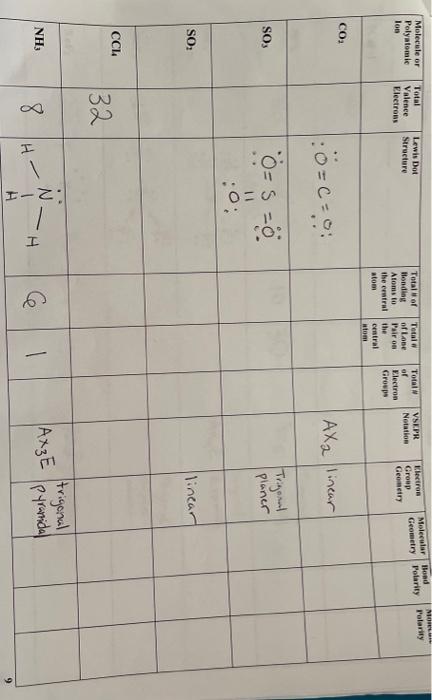 Molecule or Polyatomic Ion
Total Valence Electrons
Lewis Dot Structure
Total # of Bonding Atoms to the central atom
Total # of Lone Pair on the central atom
Total # of Electron Groups
VSEPR Notation
Electron Group Geometry
Molecular Geometry
Bond Polarity
Polarity
CO₂
:Ö=C=Ö:
AX₂
linear
SO₃
Ö=S=Ö
:O:
Trigonal planer
SO₂
linear
CCl₄
32
NH₃
8
H-N̈-H
H
6
1
AX₃E
trigonal pyramidal
9